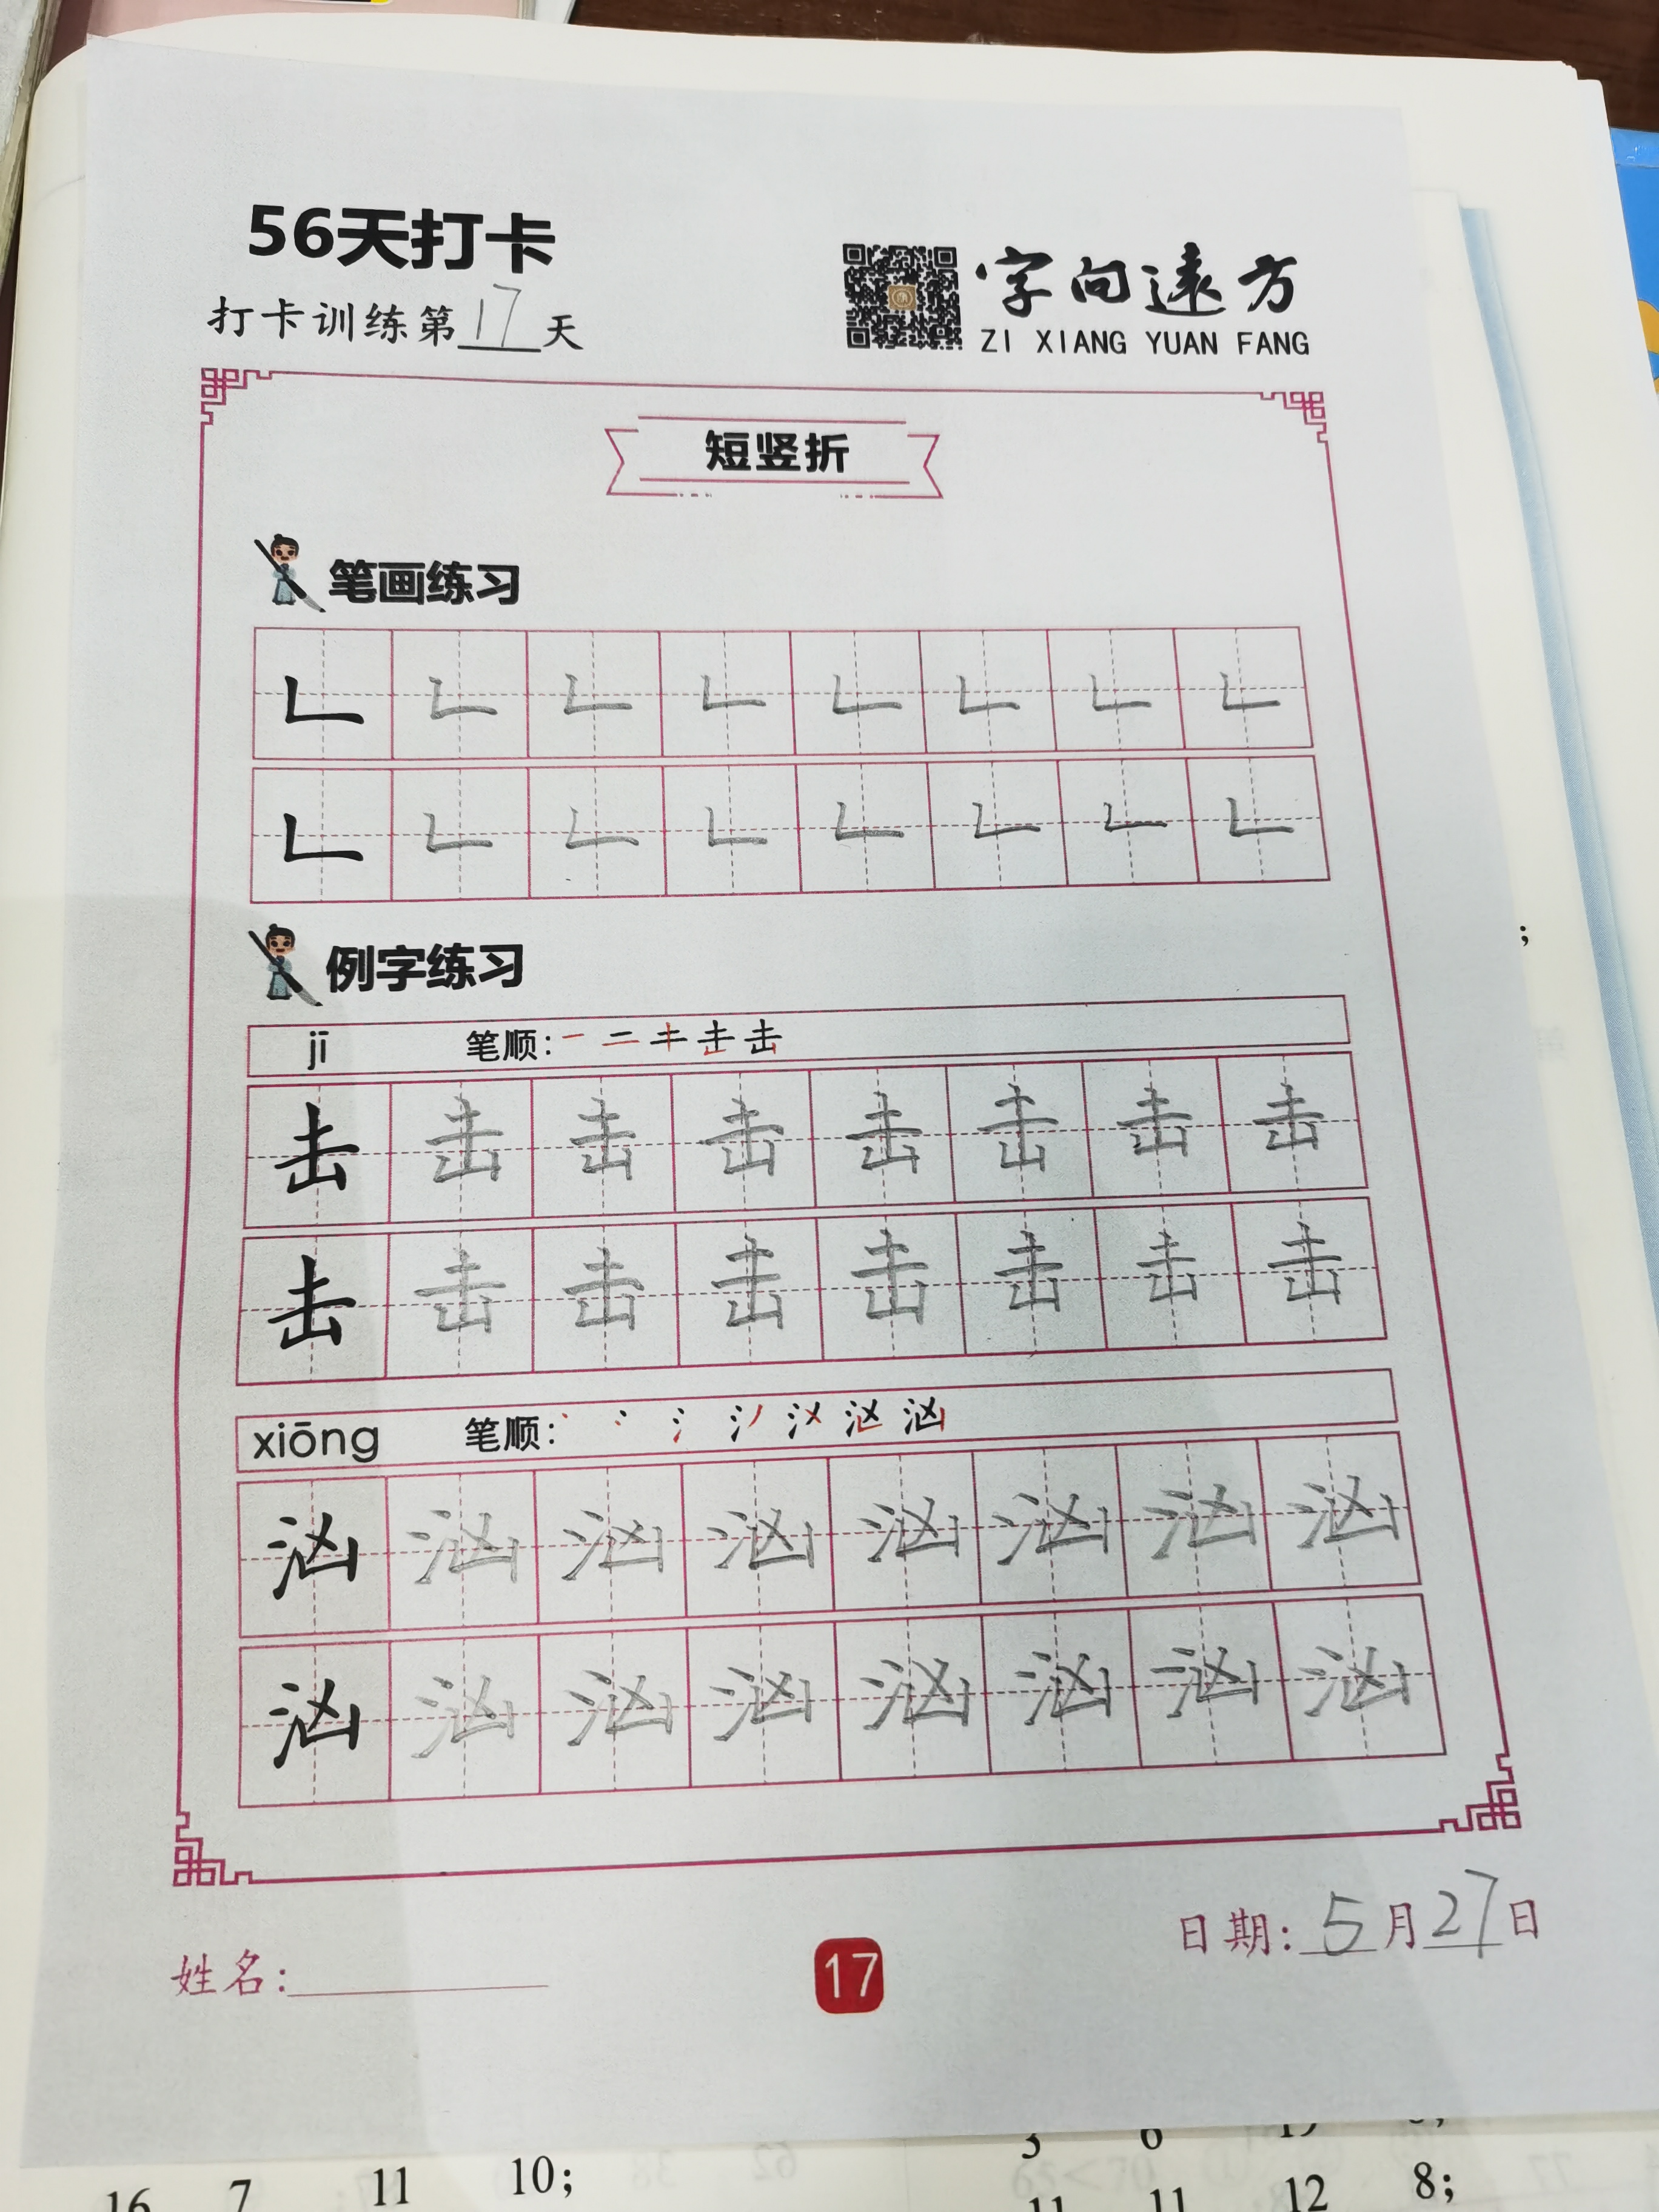 56天打卡
打卡训练第17天
字向遠方
ZI XIANG YUAN FANG
短竖折
笔画练习
例字练习
jī 笔顺:
击 击 击 击 击 击 击 击
击 击 击 击 击 击 击 击
xiōng 笔顺:
汹 汹 汹 汹 汹 汹 汹 汹
汹 汹 汹 汹 汹 汹 汹 汹
日期:5月27日
姓名:
17
3 6
16 7 11 10;
11 11 12 8;